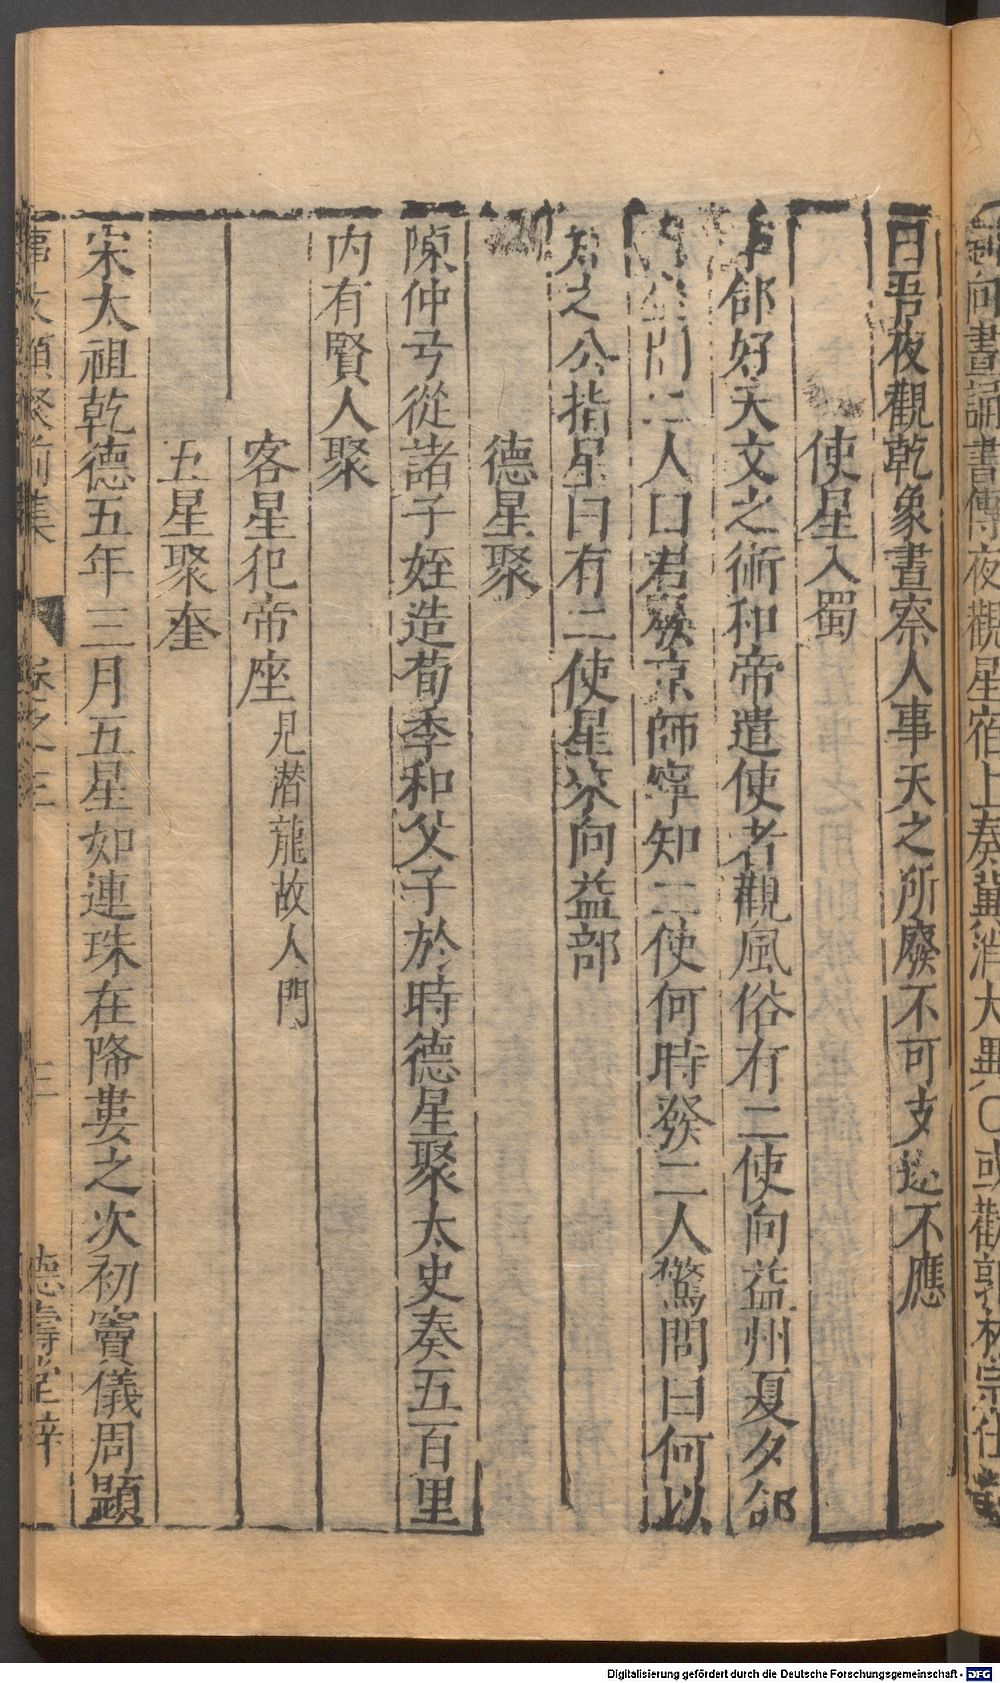 向晝誦書傳夜觀星宿上奏冀消大異〇或勸郭林宗仕
曰吾夜觀乾象晝察人事天之所廢不可支也不應
使星入蜀
李郃好天文之術和帝遣使者觀風俗有二使向益州夏夕郃
二人曰君發京師寧知二使何時發二人驚問曰何以
知之公指星曰有二使星來向益部
德星聚
陳仲弓從諸子姪造荀季和父子於時德星聚太史奏五百里
内有賢人聚
客星犯帝座見潜龍故人門
五星聚奎
宋太祖乾德五年三月五星如連珠在降婁之次初竇儀周顕
事文類聚前集 之三 三 德壽堂梓
Digitalisierung gefördert durch die Deutsche Forschungsgemeinschaft - DFG